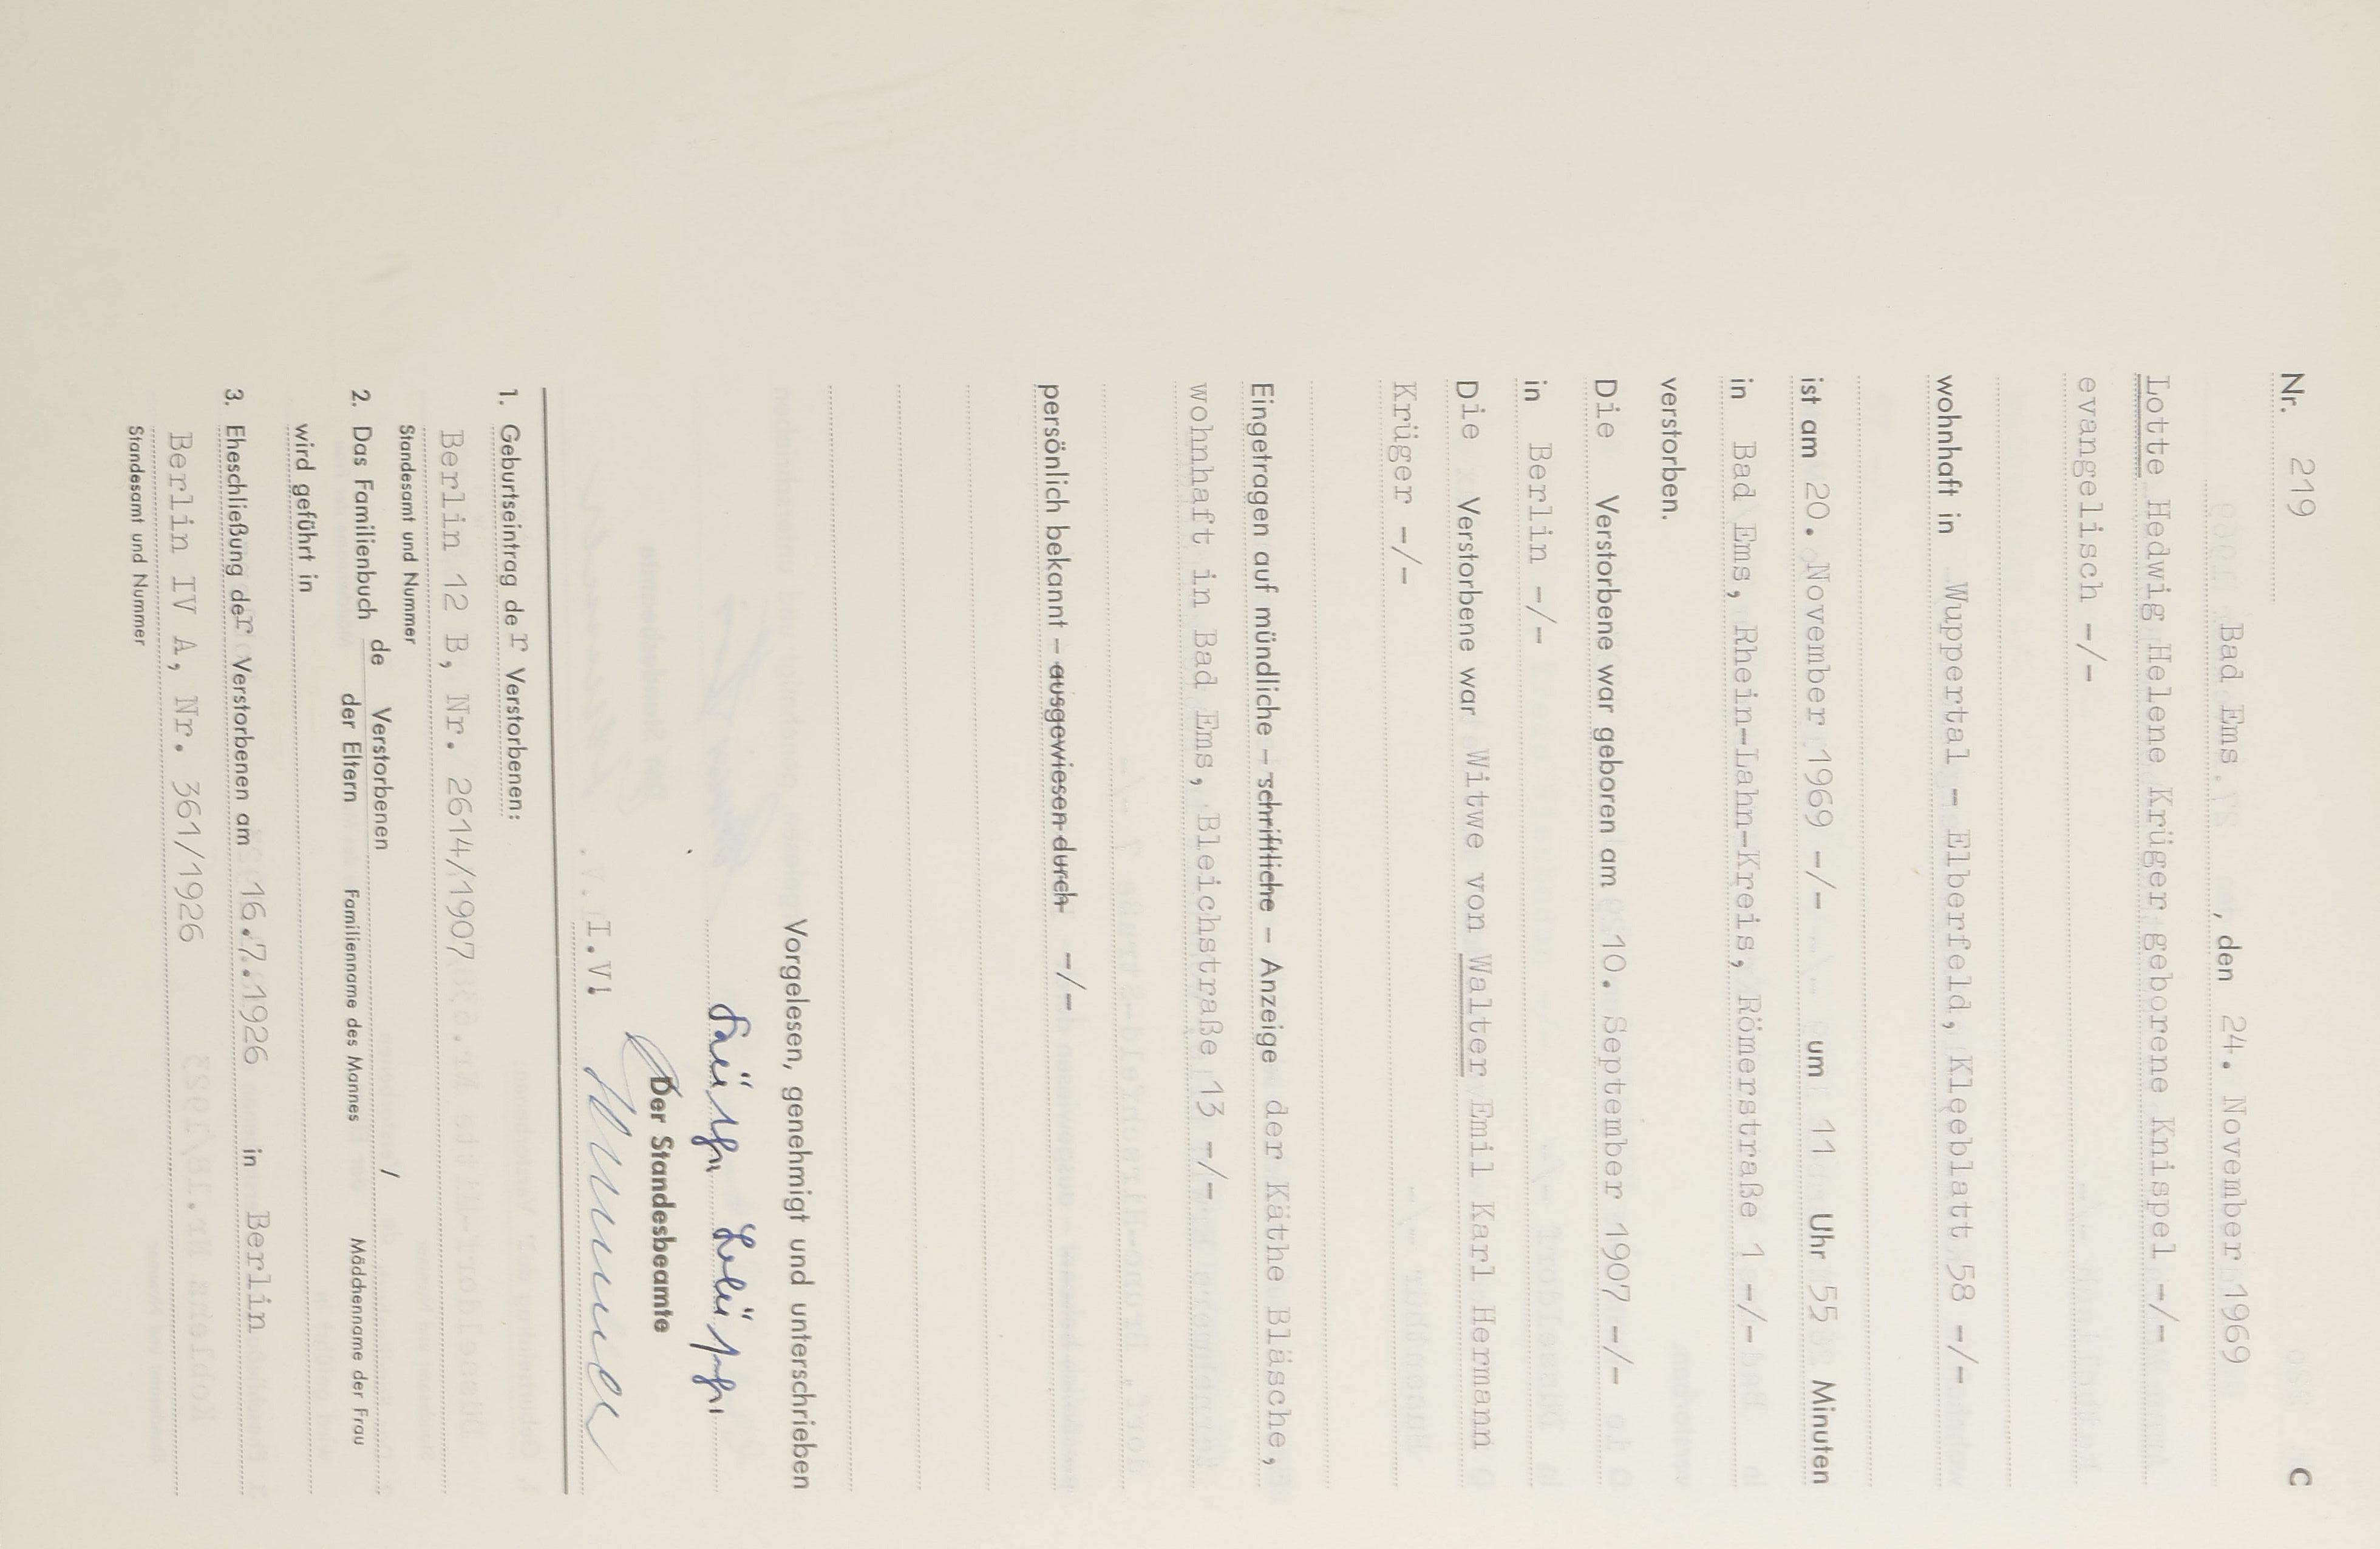 Nr. 219 C
Bad Ems, den 24. November 1969
Lotte Hedwig Helene Krüger geborene Knispel -/-
evangelisch -/-
wohnhaft in Wuppertal - Elberfeld, Kleeblatt 58 -/-
ist am 20. November 1969 -/- um 11 Uhr 55 Minuten
in Bad Ems, Rhein-Lahn-Kreis, Römerstraße 1 -/-
verstorben.
Die Verstorbene war geboren am 10. September 1907 -/-
in Berlin -/-
Die Verstorbene war Witwe von Walter Emil Karl Hermann
Krüger -/-
Eingetragen auf mündliche - schriftliche - Anzeige der Käthe Bläsche,
wohnhaft in Bad Ems, Bleichstraße 13 -/-
persönlich bekannt - ausgewiesen durch -/-
Vorgelesen, genehmigt und unterschrieben
Der Standesbeamte
I.V.
1. Geburtseintrag der Verstorbenen:
Berlin 12 B, Nr. 2614/1907
Standesamt und Nummer
2. Das Familienbuch de Verstorbenen /
der Eltern Familienname des Mannes Mädchenname der Frau
wird geführt in
3. Eheschließung der Verstorbenen am 16.7.1926 in Berlin
Berlin IV A, Nr. 361/1926
Standesamt und Nummer